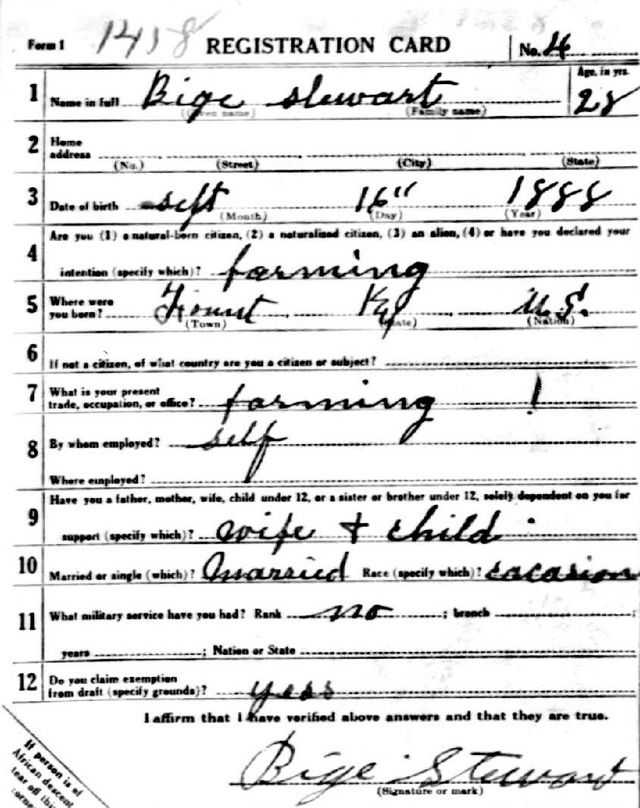 Form 1 1418 REGISTRATION CARD No. 4
1 Name in full Bige Stewart Age, in yrs. 28
(Given name) (Family name)
2 Home address
(No.) (Street) (City) (State)
3 Date of birth Sept 16" 1888
(Month) (Day) (Year)
4 Are you (1) a natural-born citizen, (2) a naturalized citizen, (3) an alien, (4) or have you declared your
intention (specify which)? farming
5 Where were you born? Fount Ky U.S.
(Town) (State) (Nation)
6 If not a citizen, of what country are you a citizen or subject?
7 What is your present trade, occupation, or office? farming !
8 By whom employed? self
Where employed?
9 Have you a father, mother, wife, child under 12, or a sister or brother under 12, solely dependent on you for
support (specify which)? wife + child
10 Married or single (which)? Married Race (specify which)? cacasion
11 What military service have you had? Rank no ; branch ;
years ; Nation or State
12 Do you claim exemption from draft (specify grounds)? yess
I affirm that I have verified above answers and that they are true.
Bige Stewart
(Signature or mark)
If person is of
African descent
tear off this
corner